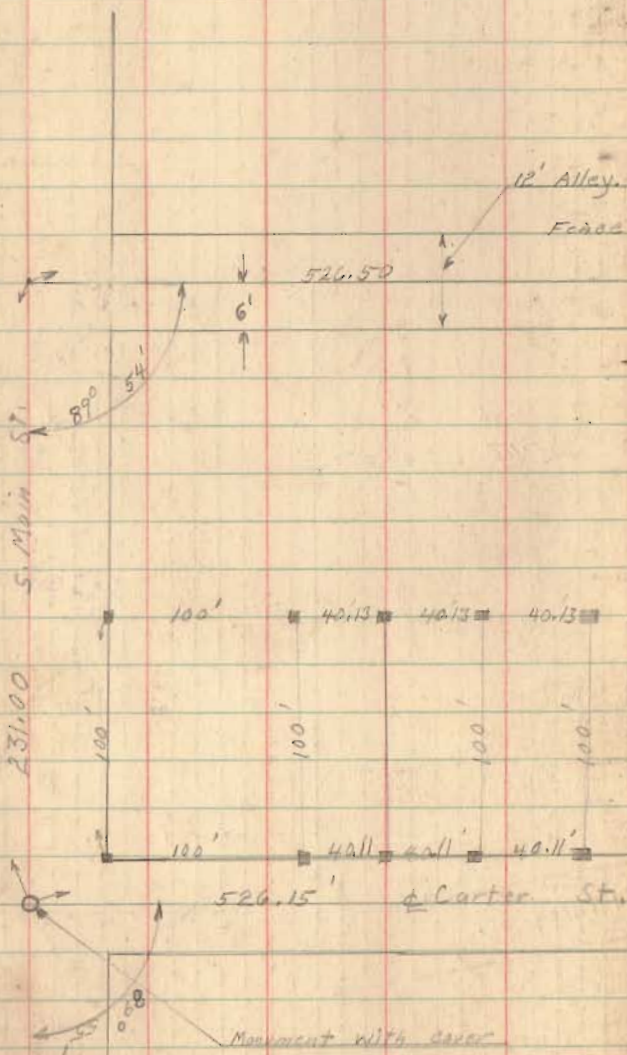 12' Alley.
Fence
526.50
6'
89° 54'
S. Main St.
100' 40.13 40.13 40.13
231.00
100' 100' 100' 100'
100' 40.11 40.11' 40.11'
526.15' ₵ Carter St.
89° 55'
Monument with cover